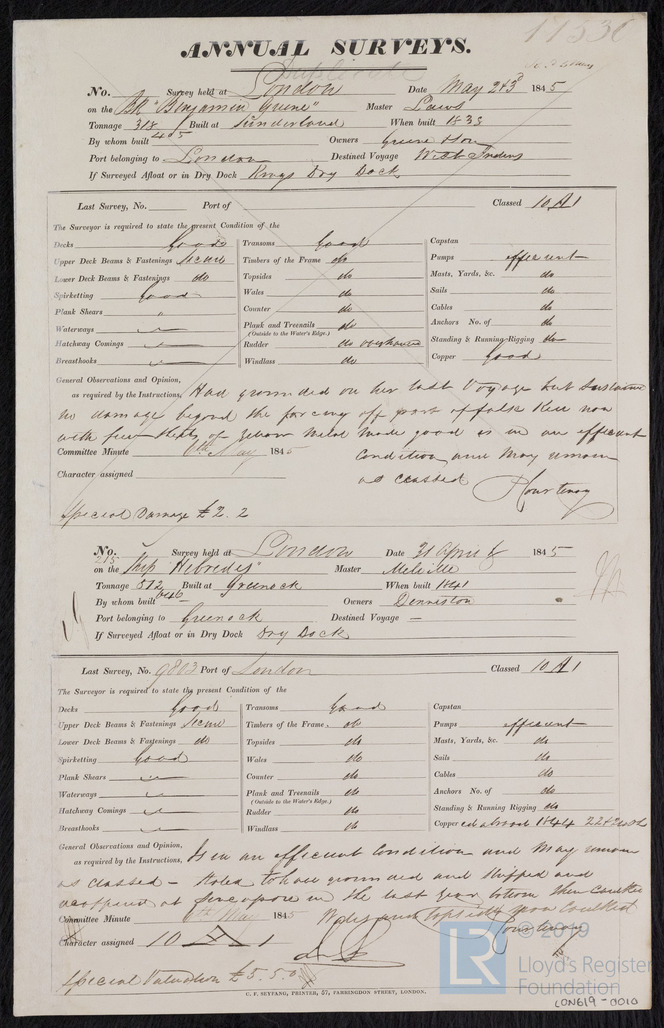 17536
ANNUAL SURVEYS.
Duplicate
No. Survey held at London Date May 2 & 3d 1845
on the Bk "Benjamin Greene" Master Laws
Tonnage 318 Built at Sunderland When built 1833
405
By whom built Owners Greene & Son
Port belonging to London Destined Voyage West Indies
If Surveyed Afloat or in Dry Dock Kings Dry Dock
Last Survey, No. Port of Classed 10 A 1
The Surveyor is required to state the present Condition of the
Decks Good Transoms Good Capstan
Upper Deck Beams & Fastenings Secure Timbers of the Frame do Pumps efficient
Lower Deck Beams & Fastenings do Topsides do Masts, Yards, &c. do
Spirketting Good Wales do Sails do
Plank Shears " Counter do Cables do
Waterways Plank and Treenails do Anchors No. of do
(Outside to the Water's Edge.)
Hatchway Comings Rudder do overhauled Standing & Running Rigging do
Breasthooks Windlass do Copper Good
General Observations and Opinion, Had grounded on her last Voyage but sustained
as required by the Instructions, no damage beyond the forcing off part of false Keel now
with few Sheets of Yellow Metal made good is in an efficient
Committee Minute 6th May 1845 Condition and May remain
Character assigned as classed Courtenay
Special Damage £2.2
No. 215 Survey held at London Date 21 April 1845
on the Ship "Hebrides" Master Melville
Tonnage 512 Built at Greenock When built 1841
646
By whom built Owners Denniston
Port belonging to Greenock Destined Voyage —
If Surveyed Afloat or in Dry Dock Dry Dock
Last Survey, No. 9803 Port of London Classed 10 A 1
The Surveyor is required to state the present Condition of the
Decks Good Transoms Good Capstan
Upper Deck Beams & Fastenings Secure Timbers of the Frame do Pumps efficient
Lower Deck Beams & Fastenings do Topsides do Masts, Yards, &c. do
Spirketting Good Wales do Sails do
Plank Shears Counter do Cables do
Waterways Plank and Treenails do Anchors No. of do
(Outside to the Water's Edge.)
Hatchway Comings Rudder do Standing & Running Rigging do
Breasthooks Windlass do Copper ed abroad 1844
General Observations and Opinion, Is in an efficient Condition and May remain
as required by the Instructions, as classed – Noted to have grounded and stripped and
at Singapore in the last Year bottom then Caulked
Committee Minute 6th May 1845 Wales and topsides now Caulked
Courtenay
Character assigned 10 A 1
Special Valuation £5.5.0
C. F. SEYFANG, PRINTER, 57, FARRINGDON STREET, LONDON.
© 2019
LR
Lloyd's Register
Foundation
LON619-0010